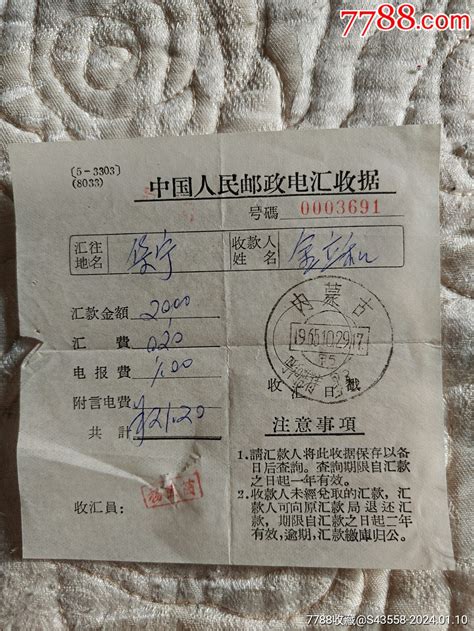 7788.com
(5-3303)
(8033)
中国人民邮政电汇收据
号碼 0003691
汇往
地名
收款人
姓名
汇款金額 2000
汇費 020
电报費 1.00
附言电費
共計 ¥21.20
内蒙古
1965.10.29.17
收汇日戳
注意事項
1.請汇款人将此收据保存以备
日后查詢。查詢期限自汇款
之日起一年有效。
2.收款人未經兌取的汇款，汇
款人可向原汇款局退还汇
款，期限自汇款之日起二年
有效，逾期，汇款繳庫归公。
收汇員：
7788收藏@S43558-2024.01.10